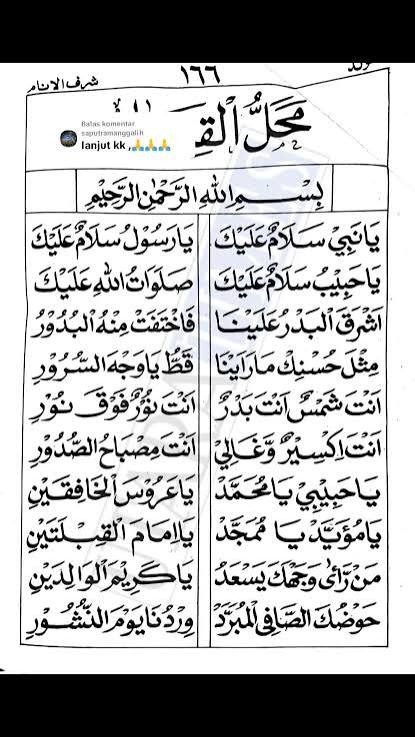 شرف الانام
١٦٦
مَحَلُّ الْقِ
Balas komentar
saputramanggalih
lanjut kk ,🙏🙏🙏🙏
بِسْمِ اللهِ الرَّحْمٰنِ الرَّحِيْمِ
يَا نَبِيْ سَلَامٌ عَلَيْكَ يَا رَسُوْلُ سَلَامٌ عَلَيْكَ
يَا حَبِيْبُ سَلَامٌ عَلَيْكَ صَلَوَاتُ اللهِ عَلَيْكَ
اَشْرَقَ الْبَدْرُ عَلَيْنَا فَاخْتَفَتْ مِنْهُ الْبُدُوْرُ
مِثْلَ حُسْنِكْ مَا رَاَيْنَا قَطُّ يَا وَجْهَ السُّرُوْرِ
اَنْتَ شَمْسٌ اَنْتَ بَدْرٌ اَنْتَ نُوْرٌ فَوْقَ نُوْرٍ
اَنْتَ اِكْسِيْرٌ وَّغَالِيْ اَنْتَ مِصْبَاحُ الصُّدُوْرِ
يَا حَبِيْبِيْ يَا مُحَمَّدْ يَا عَرُوْسَ الْخَافِقَيْنِ
يَا مُؤَيَّدْ يَا مُمَجَّدْ يَا اِمَامَ الْقِبْلَتَيْنِ
مَنْ رَّاٰى وَجْهَكَ يَسْعَدُ يَا كَرِيْمَ الْوَالِدَيْنِ
حَوْضُكَ الصَّافِى الْمُبَرَّدْ وِرْدُنَا يَوْمَ النُّشُوْرِ